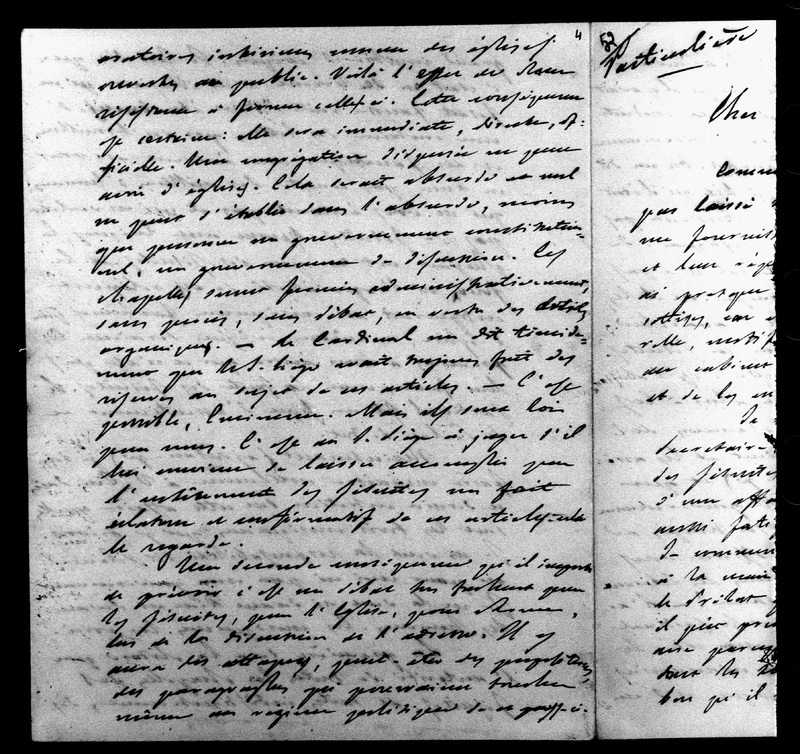 4
oratoires intérieurs comme des églises
ouvertes au public. Voilà l'effet de Rome
résistance à fermer celles-ci. Cette conséquence
est certaine : elle sera immédiate, directe, of-
ficielle. Une congrégation dispersée ne peut
avoir d'églises. Cela serait absurde et nul
ne peut s'établir dans l'absurde, moins
que personne un gouvernement constitution-
nel, un gouvernement de discussion. Les
chapelles seront fermées administrativement,
sans procès, sans débat, en vertu des articles
organiques. — Le Cardinal me dit timide-
ment que le S. Siège avait toujours fait des
réserves au sujet de ces articles. — C'est
possible, Eminence. Mais ils sont loi
pour nous. C'est au S. Siège à juger s'il
lui convient de laisser accomplir par
l'entêtement des Jésuites un fait
éclatant et confirmatif de ces articles, cela
le regarde.
Une seconde conséquence qu'il importe
de prévoir c'est un débat très fâcheux pour
les Jésuites, pour l'Eglise, pour Rome,
lors de la discussion de l'adresse. Il y
aura des attaques, peut-être des propositions,
des paragraphes qui pourraient toucher
même au régime politique de ce pays-ci.
Particulière
Cher
Comme
pas laissé
me fournit
et leur
ai presque
sottises, car
au cabinet
et de les
De
Secrétaire
des Jésuites
d'une aff
aussi
à la main
le Prélat
il peut
dont les
bon qu'il